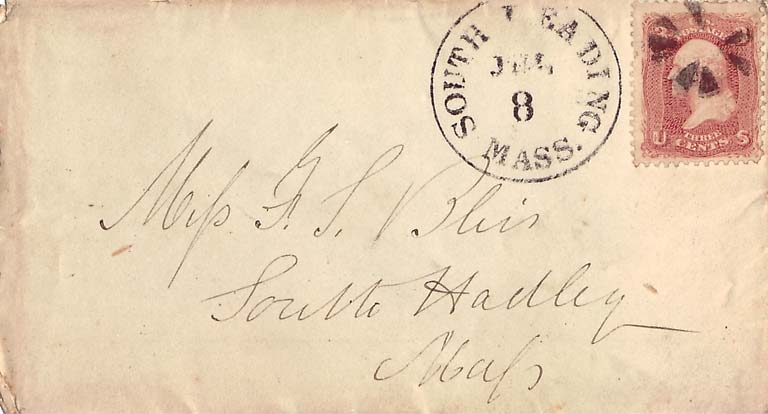 SOUTH READING
JUL
8
MASS.
U THREE CENTS S
Miss F. S. Blis
South Hadley
Mass